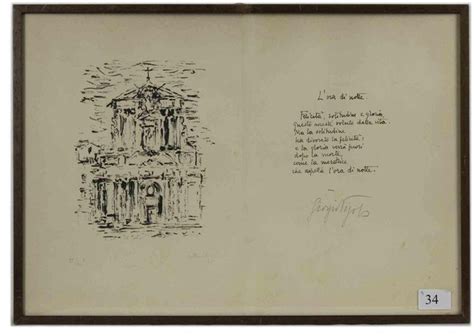 L'ora di notte.
Felicità, solitudine e gloria,
questo avesti volute dalla vita.
Ma la solitudine
ha divorato la felicità:
e la gloria verrà fuori
dopo la morte,
come la meretrice
che aspetta l'ora di notte.
34